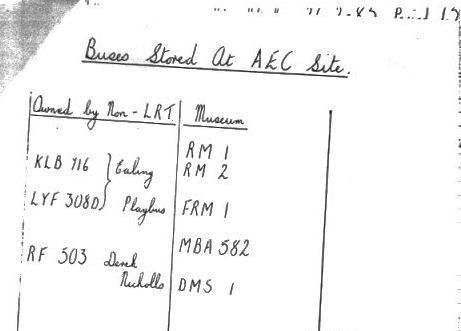 Buses Stored At AEC Site.
Owned by Non-LRT Museum
RM 1
KLB 716 } Ealing RM 2
LYF 308D } Playbus FRM 1
MBA 582
RF 503 Derek
Nicholls DMS 1